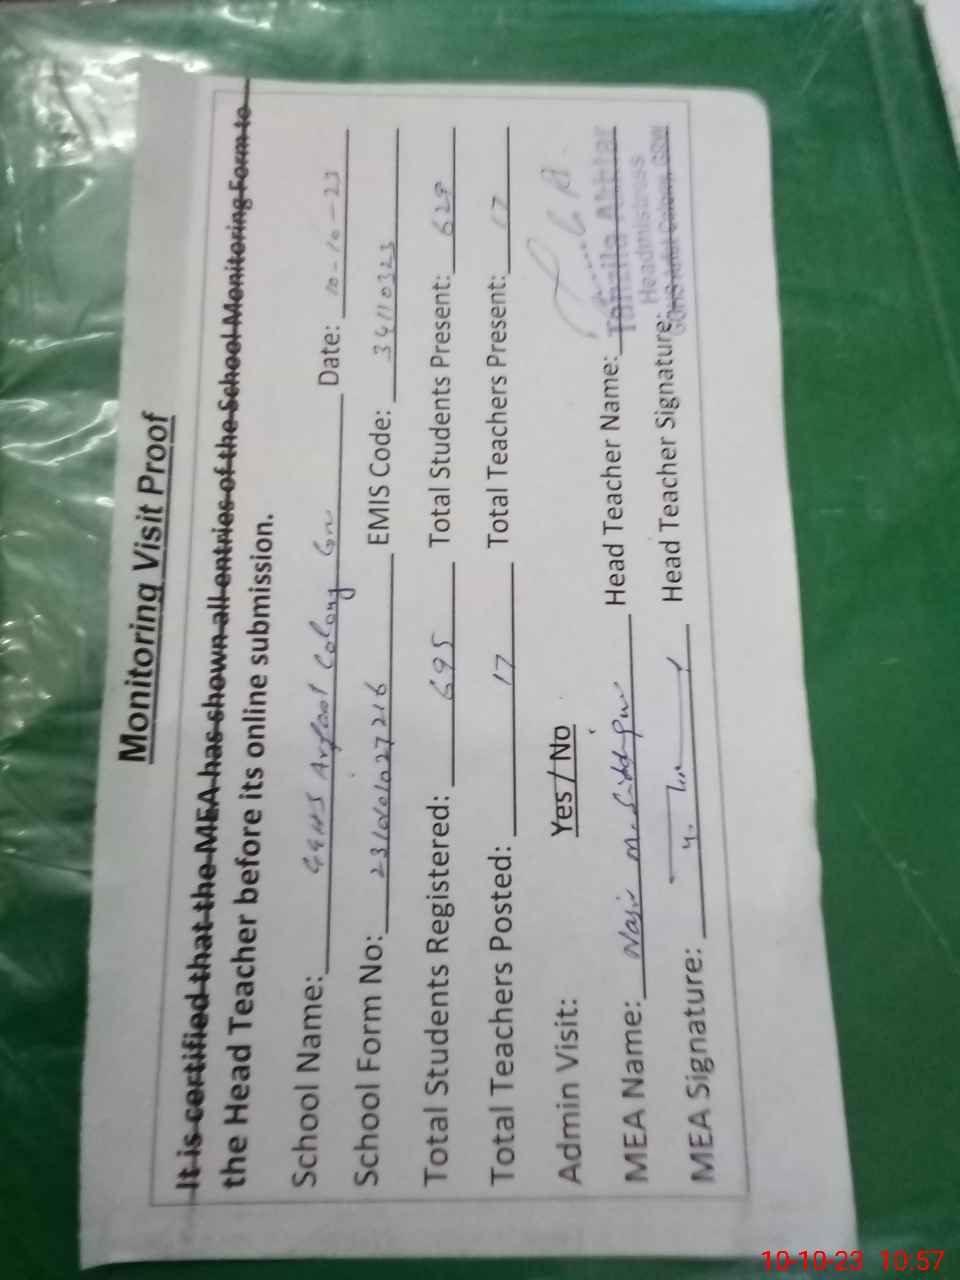 Monitoring Visit Proof
It is certified that the MEA has shown all entries of the School Monitoring Form to
the Head Teacher before its online submission.
School Name: GGHS Arfaat Colony Grw Date: 10-10-23
School Form No: EMIS Code: 34110323
Total Students Registered: 695 Total Students Present: 629
Total Teachers Posted: 17 Total Teachers Present: 17
Admin Visit: Yes / No
MEA Name: Head Teacher Name: Tanzila Akhtar
Headmistress
MEA Signature: Head Teacher Signature: Colony, GRW
10-10-23 10:57